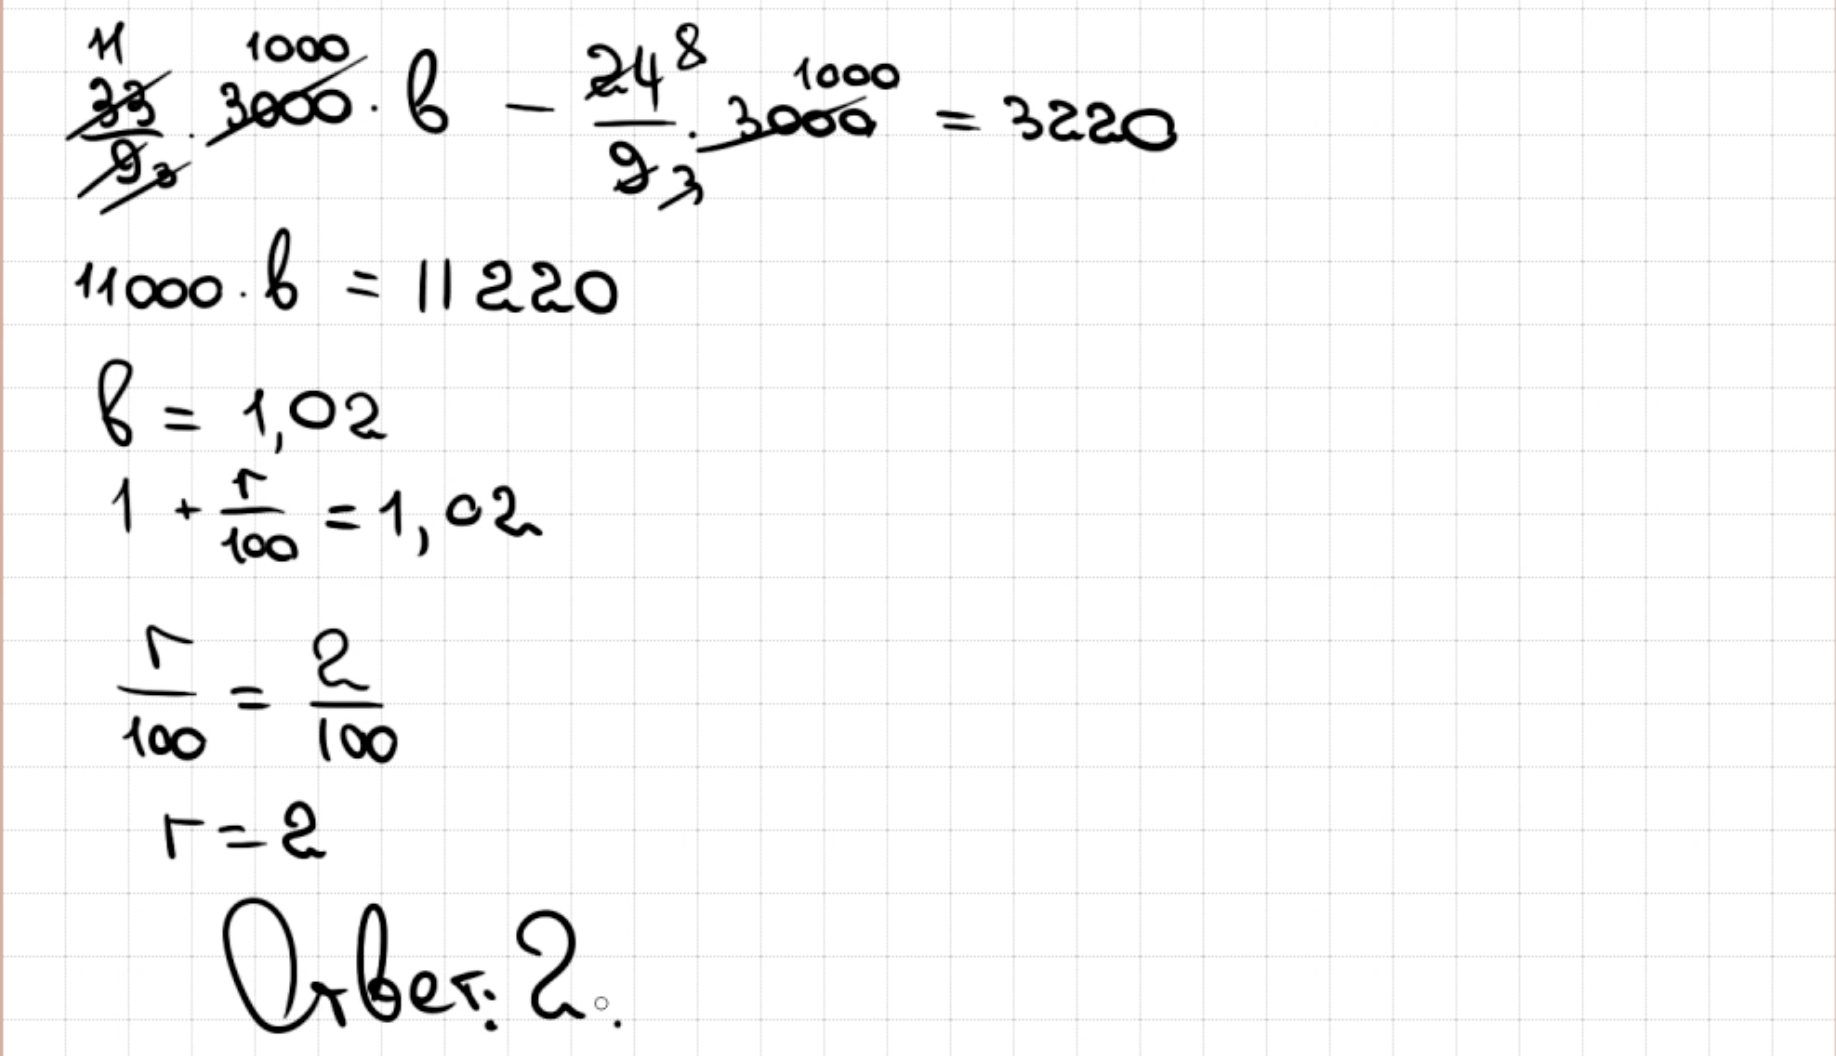 11 1000 8 1000
33/9 3 · 3000 · b − 24/9 3 · 3000 = 3220
11000 · b = 11220
b = 1,02
1 + r/100 = 1,02
r/100 = 2/100
r = 2
Ответ: 2.